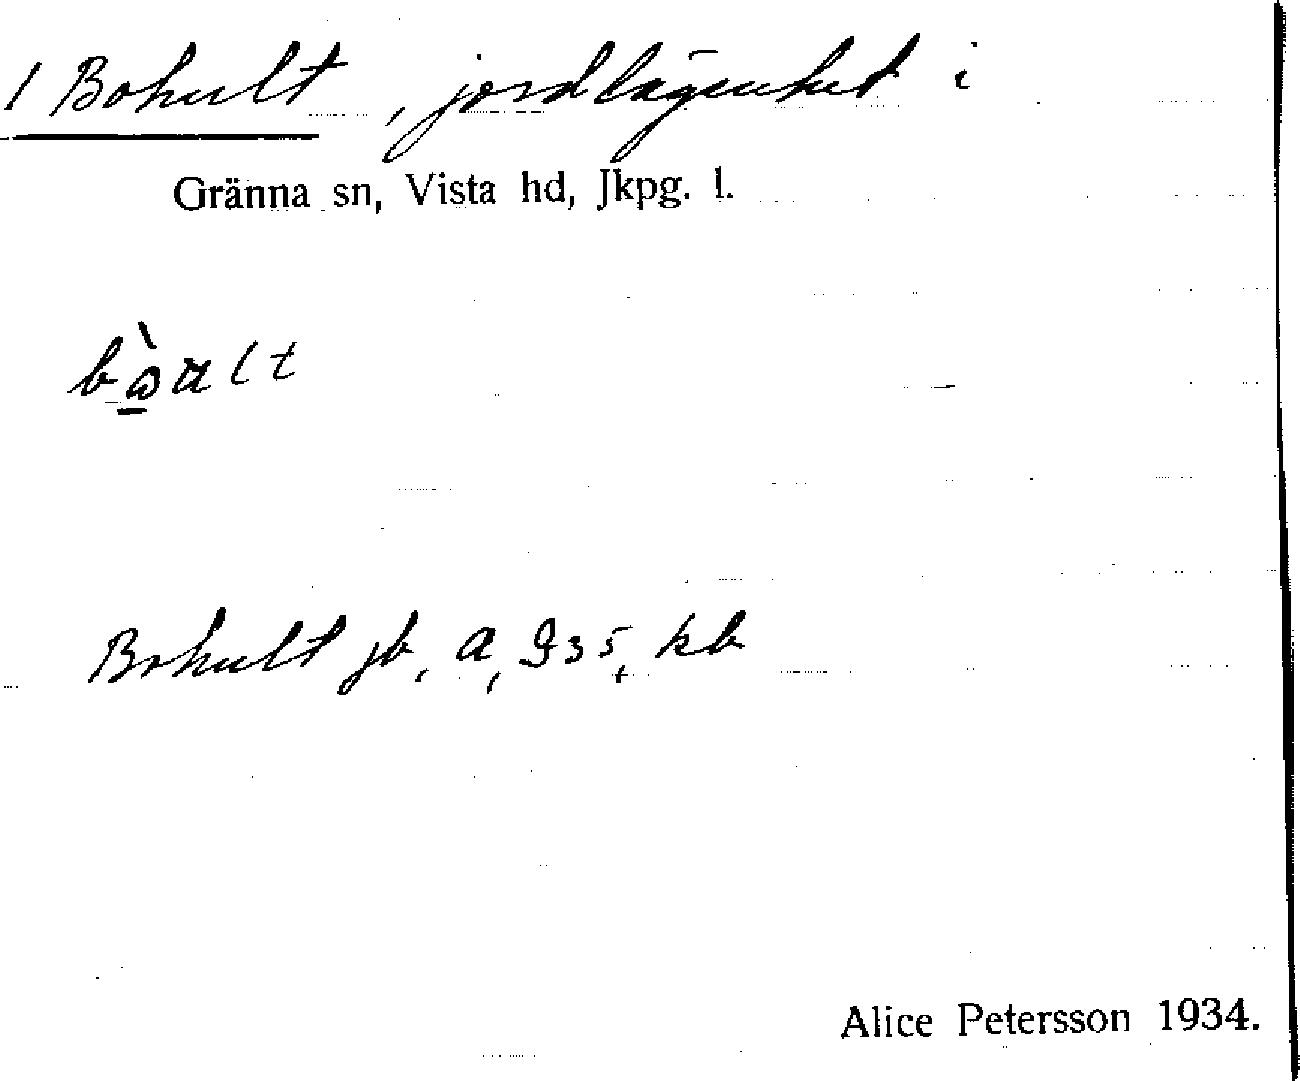 1 Bohult, jordlägenhet i
Gränna sn, Vista hd, Jkpg. l.
Bohult jb, a, G35, kb
Alice Petersson 1934.